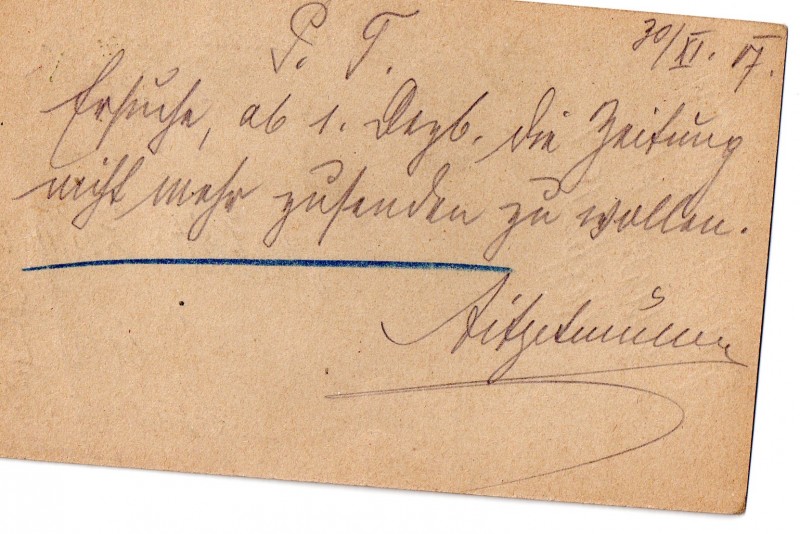 30/XI. 17.
P. T.
Ersuche, ab 1. Dezb. die Zeitung
nicht mehr zusenden zu wollen.